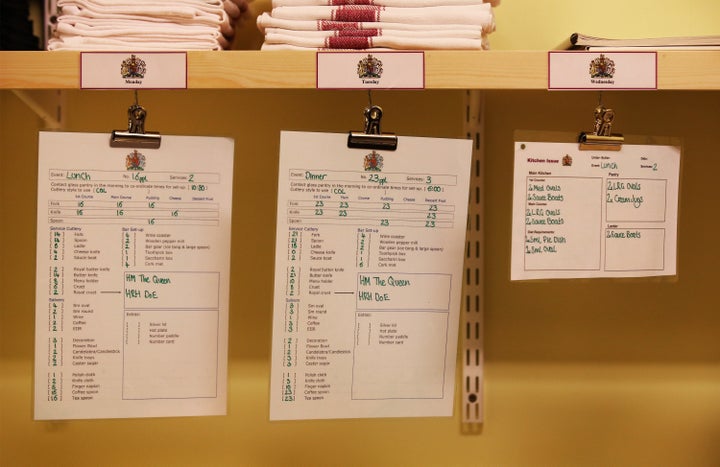 Monday
Event: Lunch No. 16ppl Services: 2
Contact glass pantry in the morning to co-ordinate times for set up. [10:30]
Cutlery style to use [ COL
1st Course Main Course Pudding Cheese Dessert Fruit
Fork 16 16 16
Knife 16 16 16
Spoon 16
Service Cutlery
Fork
Spoon
Ladle
Cheese knife
Sauce boat
Royal butter knife
Butter knife
Menu holder
Cruet
Royal cruet
Bar Set-up
Wine coaster
Wooden pepper mill
Bar gear (ice tong & large spoon)
Toothpick box
Saccharin box
Cork mat
HM The Queen
HRH DoE
Salvers
5in oval
5in round
Wine
Coffee
EDR
Decoration
Flower Bowl
Candelabra/Candlestick
Knife trays
Caster sugar
Polish cloth
Knife cloth
Finger napkin
Coffee spoon
Tea spoon
Extras:
Silver lid
Hot plate
Number paddle
Number card
Tuesday
Event: Dinner No. 23ppl Services: 3
Contact glass pantry in the morning to co-ordinate times for set up. [6:00]
Cutlery style to use [ COL
1st Course Main Course Pudding Cheese Dessert Fruit
Fork 23 23 23 23
Knife 23 23 23
Spoon 23 23
Service Cutlery
Fork
Spoon
Ladle
Cheese knife
Sauce boat
Royal butter knife
Butter knife
Menu holder
Cruet
Royal cruet
Bar Set-up
Wine coaster
Wooden pepper mill
Bar gear (ice tong & large spoon)
Toothpick box
Saccharin box
Cork mat
HM The Queen
HRH DoE
Salvers
5in oval
5in round
Wine
Coffee
EDR
Decoration
Flower Bowl
Candelabra/Candlestick
Knife trays
Caster sugar
Polish cloth
Knife cloth
Finger napkin
Coffee spoon
Tea spoon
Extras:
Silver lid
Hot plate
Number paddle
Number card
Wednesday
Kitchen Issue
Lunch
Services: 2
Main Kitchen
1st Course
2 Meat Ovals
2 Sauce Boats
Main Course
2 L.R.G Ovals
2 Sauce Boats
Diet Requirements
1 Sml Pie Dish
1 Sml Oval
Pastry
2 L.R.G Ovals
2 Cream Jugs
Larder
2 Sauce Boats